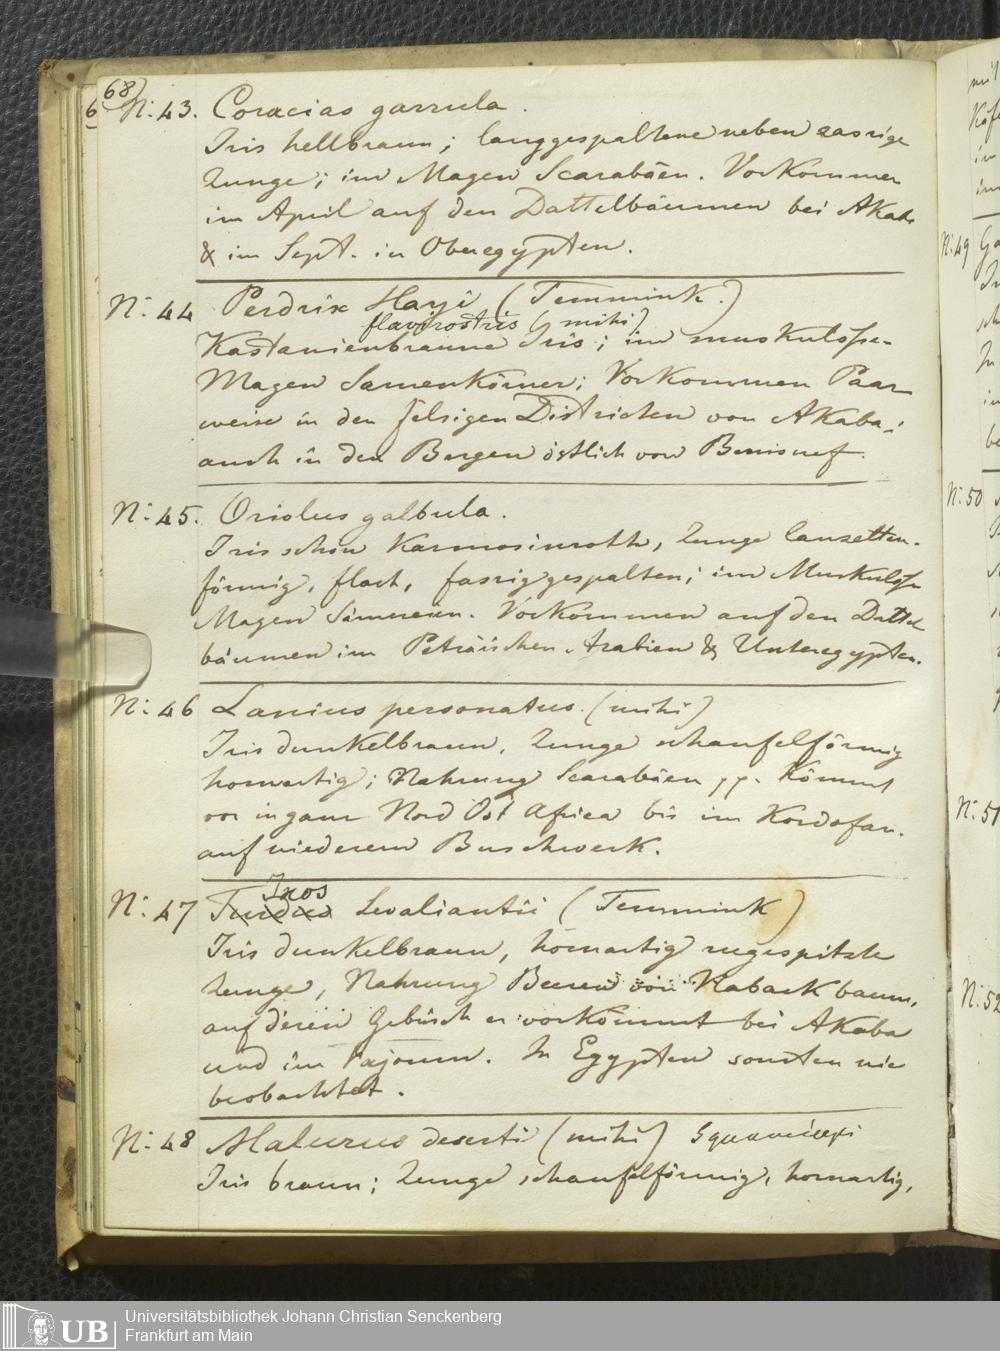 68)
6
N: 43. Coracias garrula.
Iris hellbraun; langgespaltene neben zasrige
Zunge; im Magen Scarabäen. Vorkommen
im April auf den Dattelbäumen bei Akaba
& im Sept. in Oberegypten.
N: 44 Perdrix Hayi (Temmink.)
flavirostris (mihi)
Kastanienbraune Iris; im muskulösen
Magen Samenkörner; Vorkommen Paar-
weise in den felsigen Districten von Akaba;
auch in den Bergen östlich von Benisuef.
N: 45. Oriolus galbula.
Iris schön Karmosinroth, Zunge lanzetten-
förmig, flach, fasriggespalten; im Muskulösen
Magen Sämereien. Vorkommen auf den Dattel
bäumen im Peträischen Arabien & Unteregypten.
N: 46 Lanius personatus. (mihi)
Iris dunkelbraun, Zunge schaufelförmig
hornartig; Nahrung Scarabäen pp. Kömmt
vor in ganz Nord Ost Africa bis im Kordofan.
auf niederem Buschwerk.
Ixos
N: 47 Turdus Levaliantii (Temmink)
Iris dunkelbraun, hornartig zugespitzte
Zunge, Nahrung Beeren von Naback baum,
auf deren Gebüsch er vorkömmt bei Akaba
und im Fajoum. In Egypten sonsten nie
beobachtet.
N: 48 Malurus deserti (mihi)
Iris braun; Zunge schaufelförmig, hornartig,
N: 49
N: 50
N: 51
N: 52
UB
Universitätsbibliothek Johann Christian Senckenberg
Frankfurt am Main